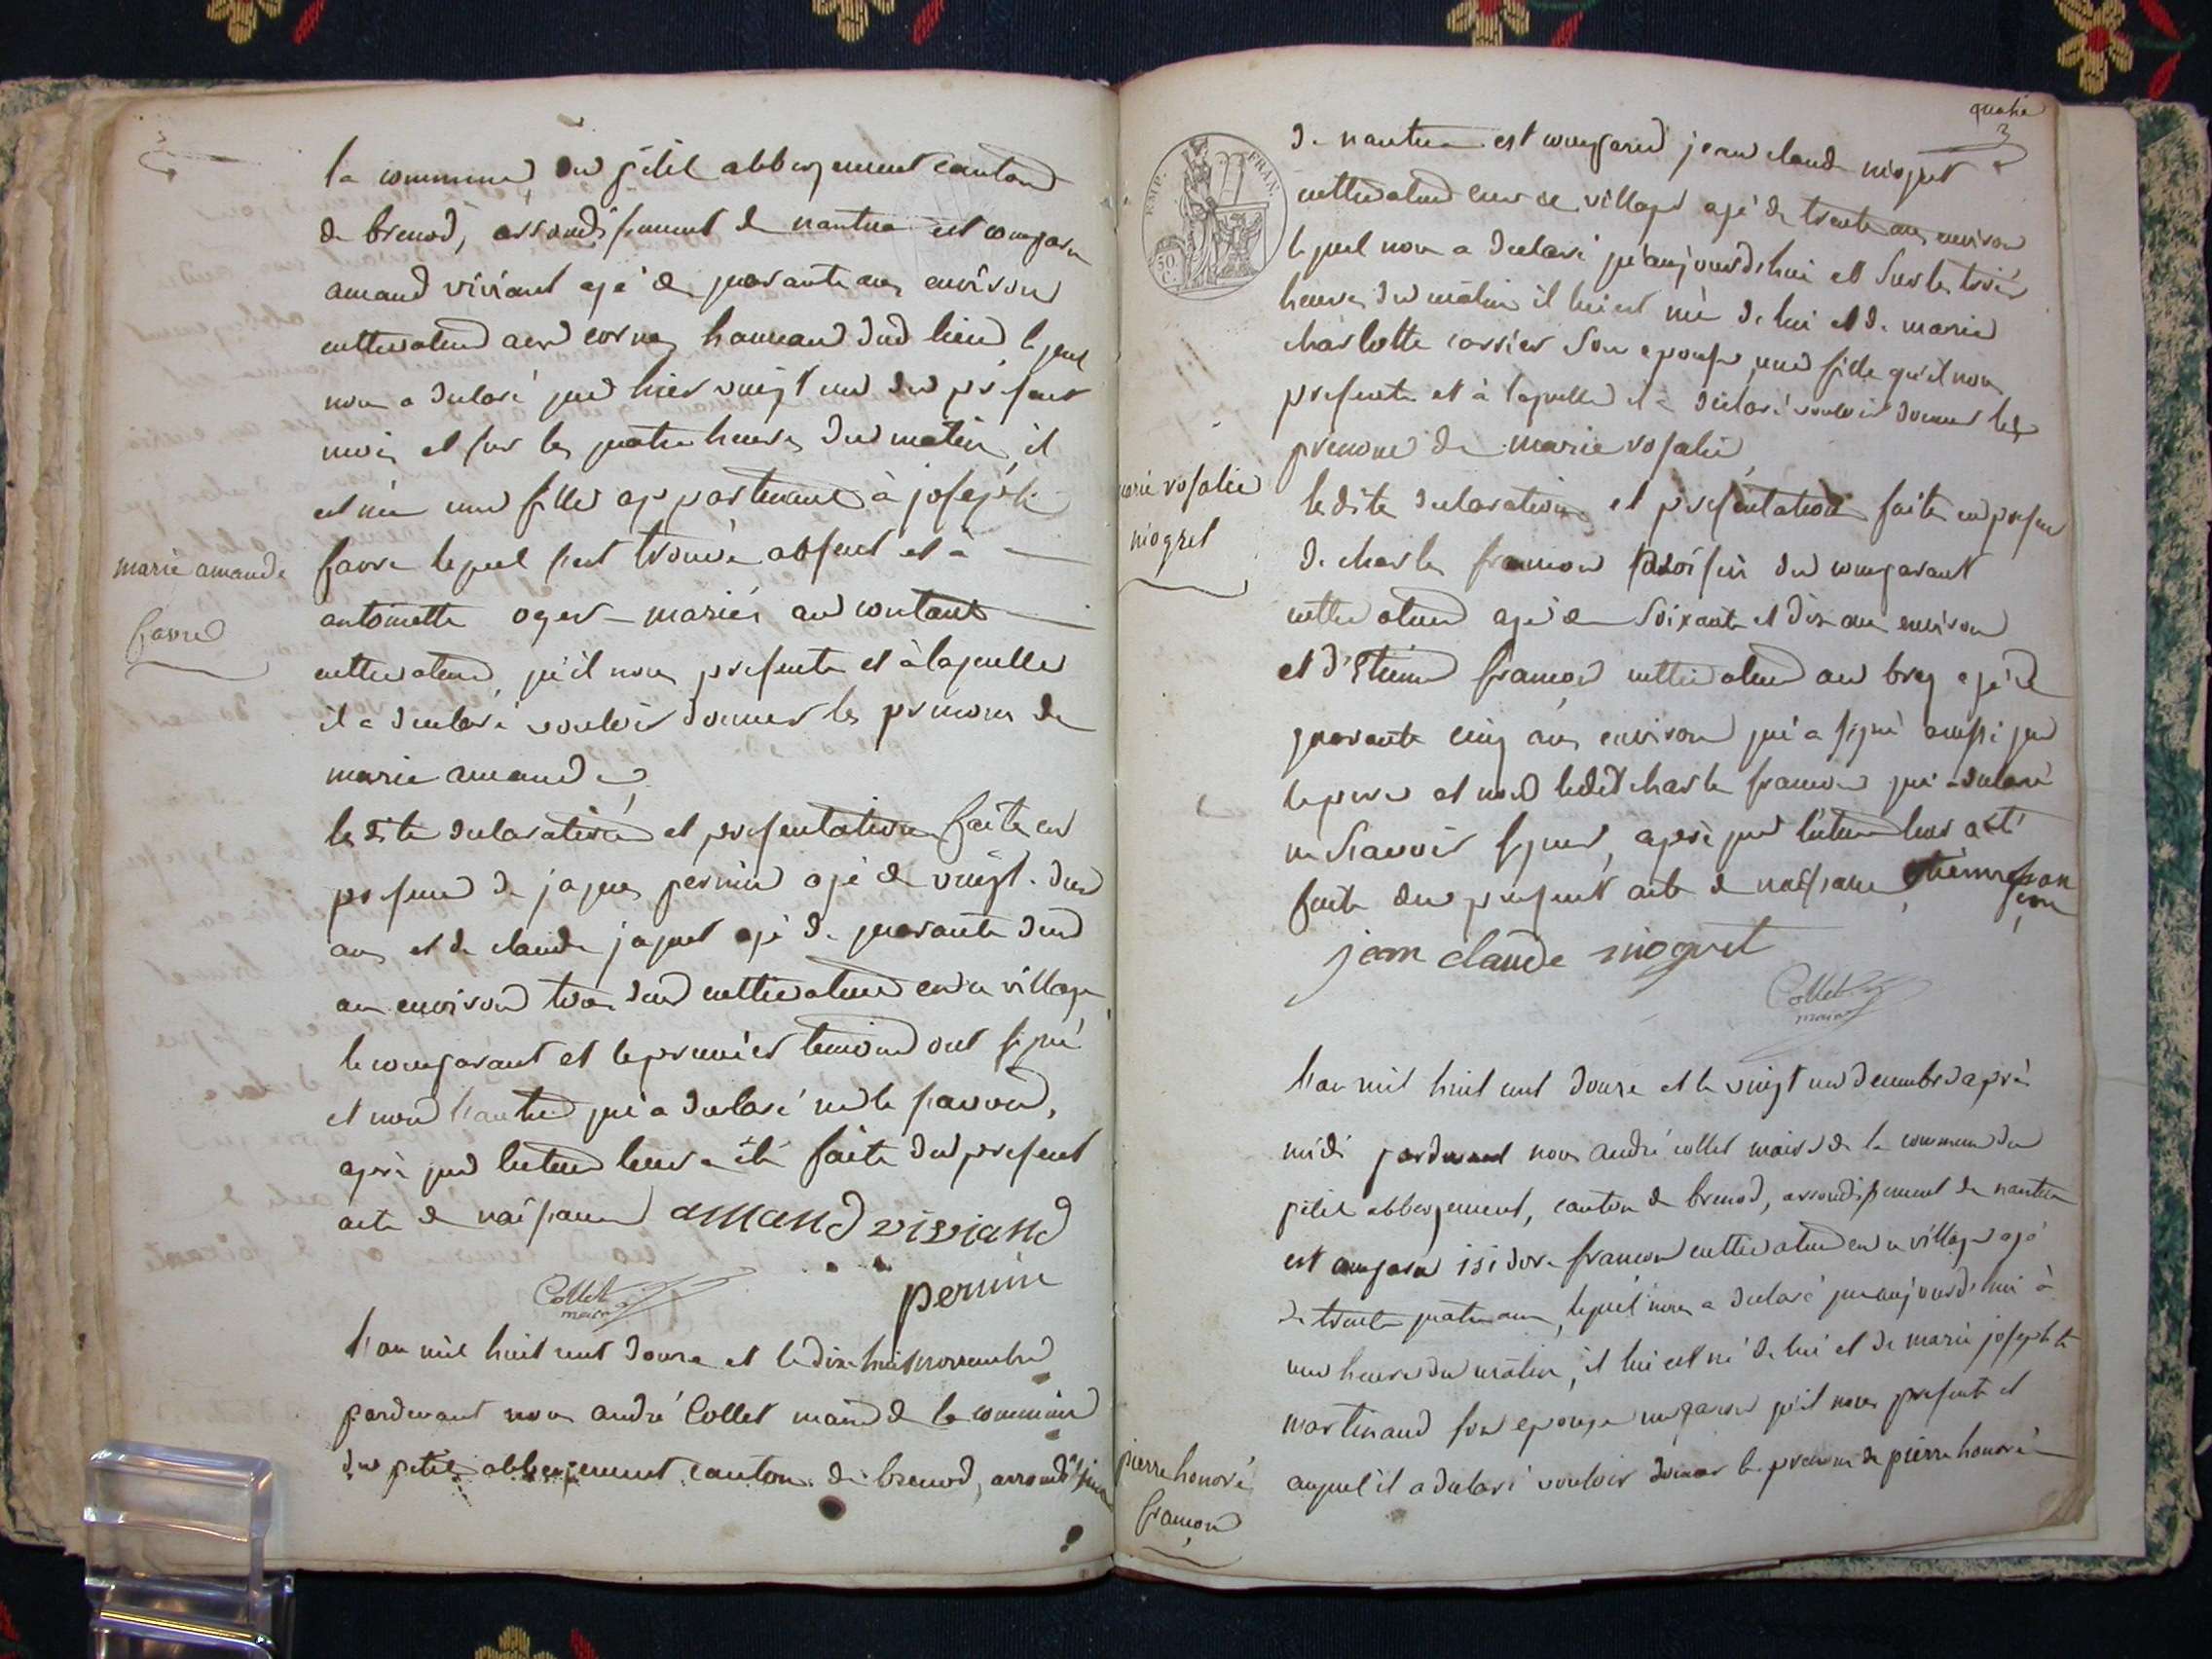 la commune du petit abbergement canton
de brenod, arrondissement de nantua est comparu
amand viviant agé de quarante ans environ
cultivateur aux cornes hameau dud lieu lequel
nous a declaré que hier vingt un du présent
mois et sur les quatre heures du matin, il
est née une fille appartenant à joseph
favre lequel s'est trouvé absent et à
marie amande
favre
antoinette oger mariés au contant
cultivateur, qu'il nous presente et à laquelle
il a declaré vouloir donner les prenoms de
marie amande,
lesdite declaration et presentation faite en
presence de jaques perrin agé de vingt deux
ans et de claude jaquet agé de quarante deux
ans environ tous deux cultivateurs en ce village
le comparant et le premier temoin ont signé
et non l'autre qui a declaré ne le savoir,
après que lecture leur a été faite du present
acte de naissance amand viviand
perrin
Collet
maire
l'an mil huit cent douze et le dix huit novembre
pardevant nous andré Collet maire de la commune
du petit abbergement canton de brenod, arrondissement
quatre
EMP. FRAN.
50 C.
de nantua est comparu jean claude niogret
cultivateur en ce village agé de trente ans environ
lequel nous a declaré qu'aujourd'hui et sur les trois
heures du matin il lui est né de lui et de marie
charlotte carrier son epouse, une fille qu'il nous
presente et à laquelle il a déclaré vouloir donner les
prenoms de marie rosalie,
marie rosalie
niogret
lesdite declaration et présentation faite en presence
de charles françon voisin du comparant
cultivateur agé de soixante et dix ans environ
et d'Etienne françon cultivateur au brey agé de
quarante cinq ans environ qui a signé aussi que
le pere et non ledit charles françon qui a declaré
ne scavoir signer, après que lecture leur a été
faite du present acte de naissance, etienne fran
çon
jean claude niogret
Collet
maire
l'an mil huit cent douze et le vingt un decembre après
midi pardevant nous andré collet maire de la commune du
petit abbergement, canton de brenod, arrondissement de nantua
est comparu isidore françon cultivateur en ce village agé
de trente quatre ans, lequel nous a declaré que aujourd'hui à
une heure du matin, il lui est né de lui et de marie josephte
martinand son epouse un garçon qu'il nous presente et
auquel il a declaré vouloir donner le prenom de pierre honoré
pierre honoré
françon